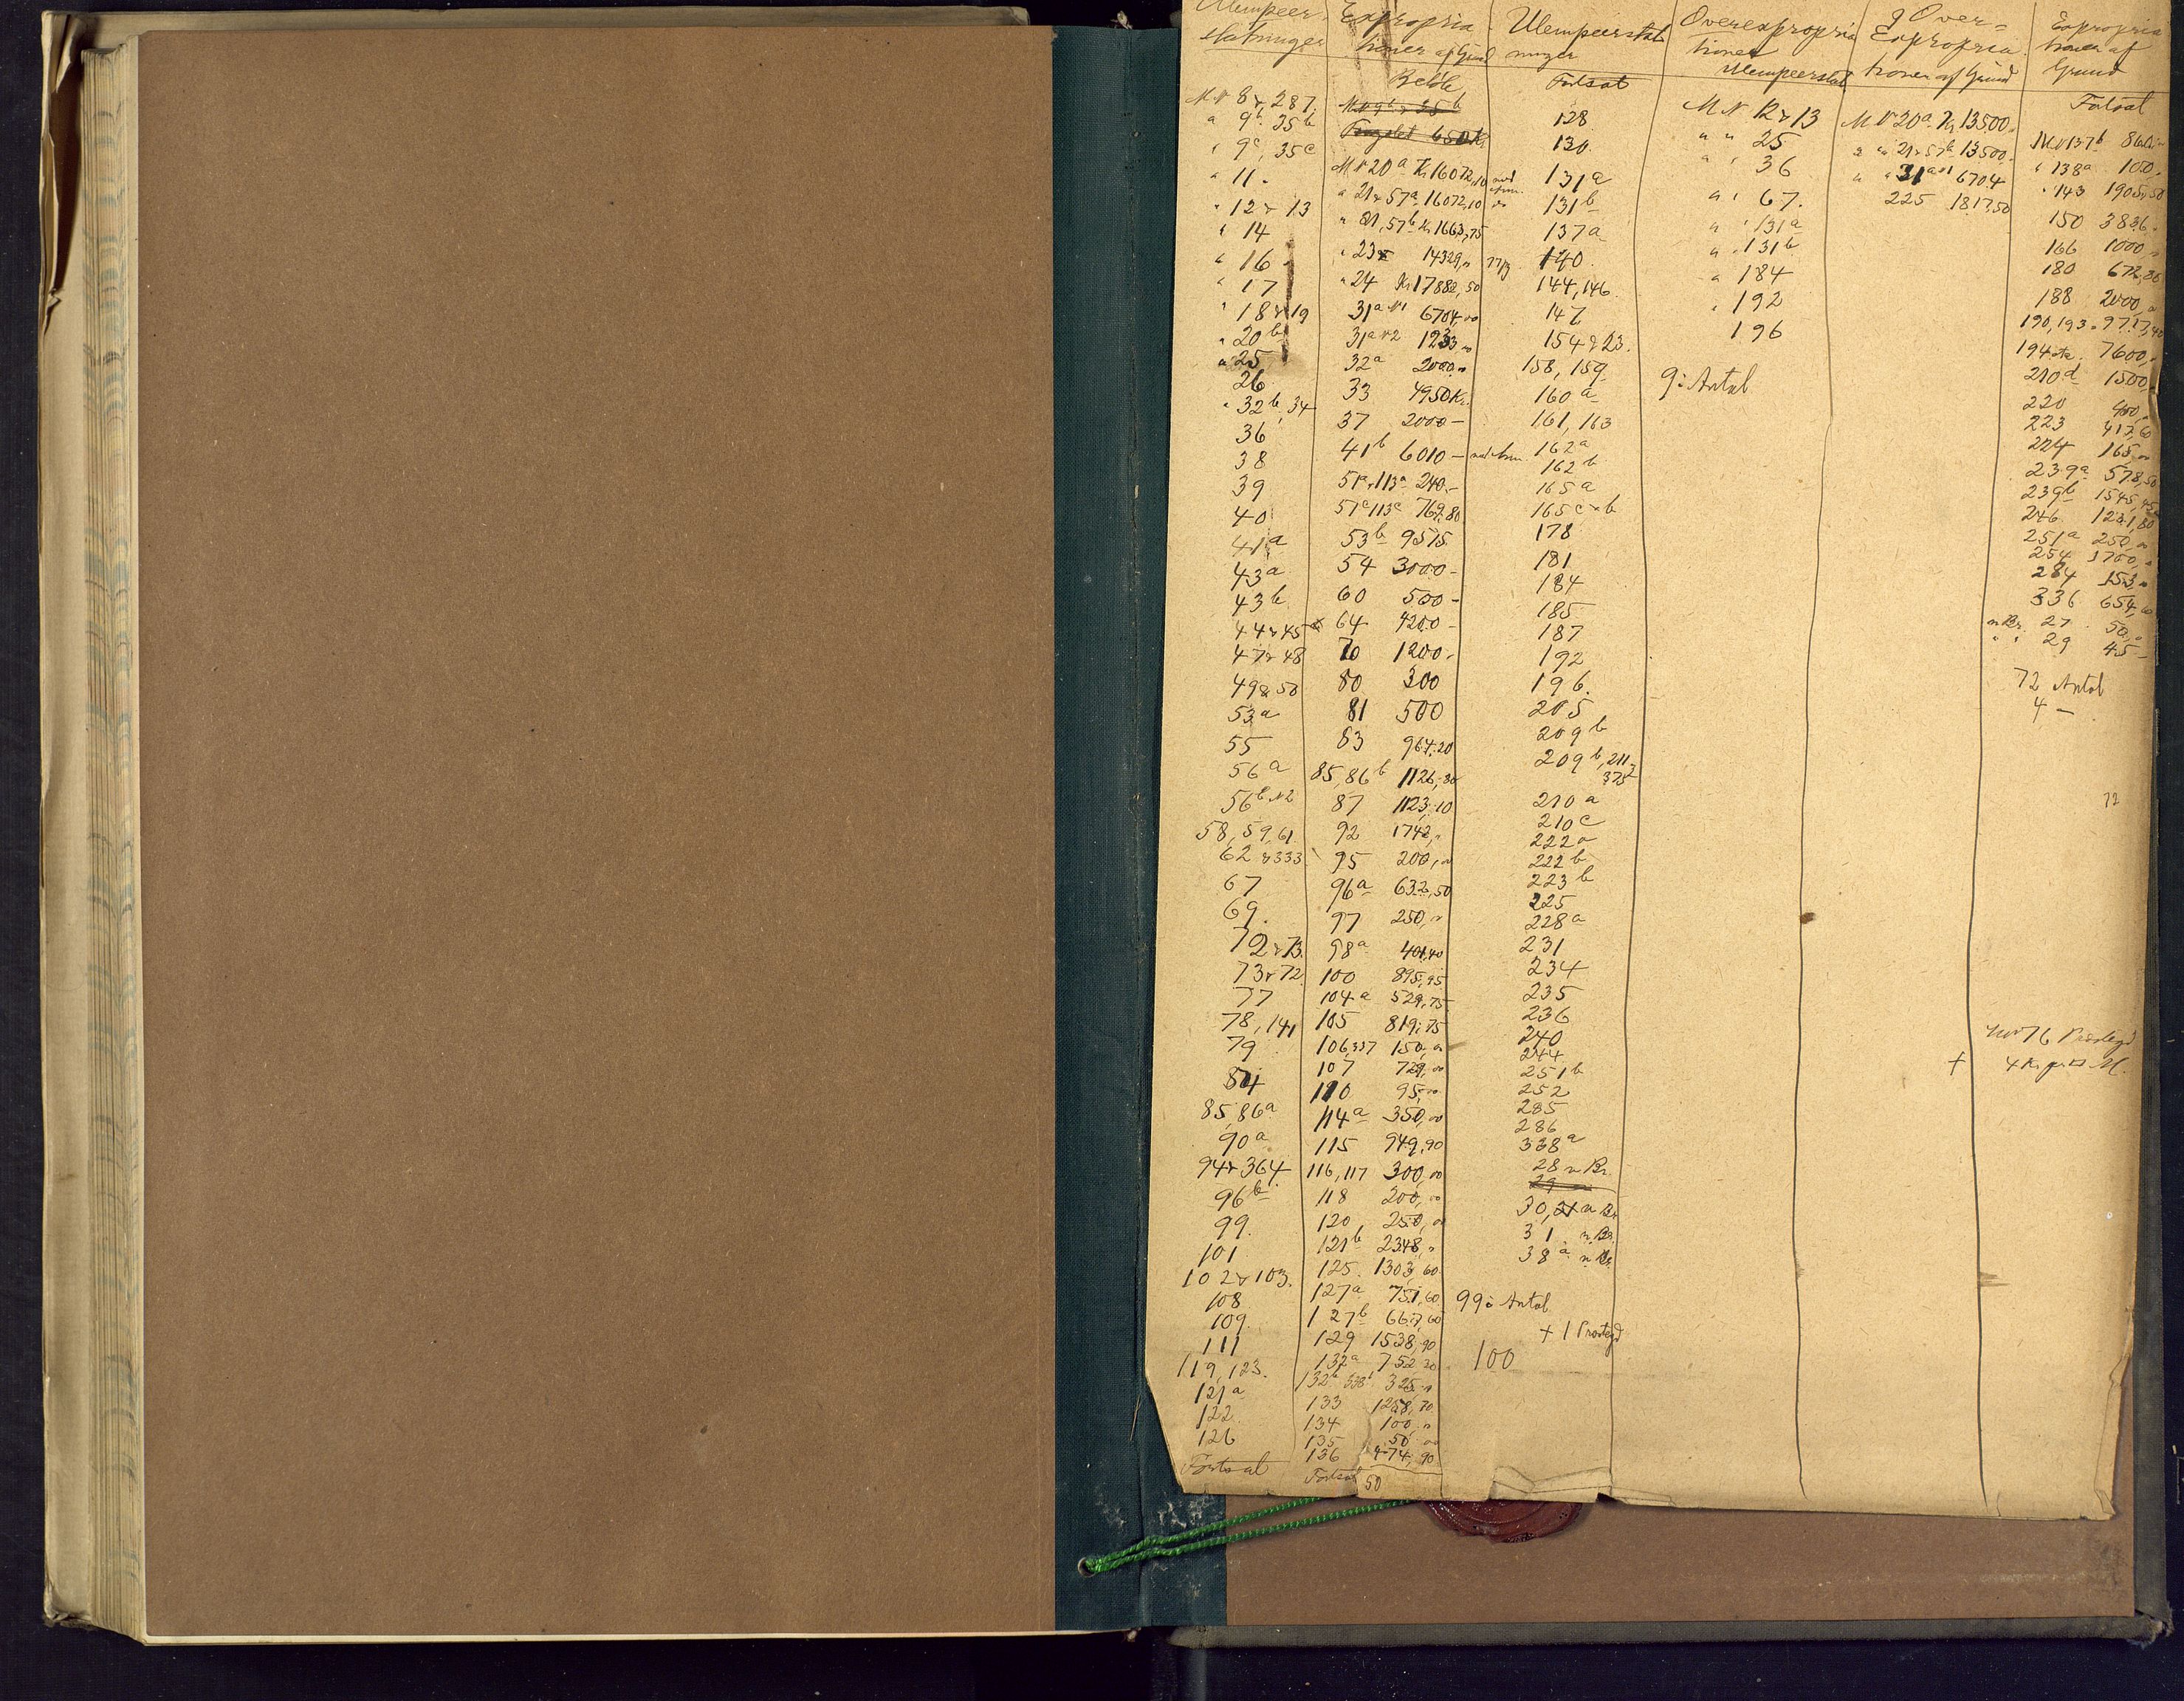 Ulempeer-
statninger
M № 8 & 287.
" 9b 35b
" 9c, 35c
" 11.
" 12 & 13
" 14
" 16
" 17
" 18 & 19
" 20b
" 25
26
" 32b, 34
36
38
39
40
41a
43a
43b
44 & 45
47 & 48
49 & 50
53a
55
56a
56b №2
58, 59, 61
62 & 333
67
69.
72 & 73.
73 & 72
77
78, 141
79
84
85, 86a
90a
94 & 364
96b
99.
101
102 & 103.
108
109.
111
119, 123.
121a
122
126
Fortsat
Expropria-
tioner af Grund
Beløb
M № 9b & 35b
650 Kr.
M № 20a Kr 16072,10
" 21 & 57a 16072,10
" 21, 57b Kr 1663,75
" 23 14329,"
" 24 Kr 17882,50
31a №1 6704,00
31a №2 1233,00
32a 2000,"
33 4950 Kr.
37 2000 -
41b 6010 -
51a, 113a 240.-
51c 113c 769,80
53b 9515
54 3000 -
60 500 -
64 4200 -
70 1200 -
80 300
81 500
83 964,20
85, 86b 1126,80
87 1123,10
92 1742,"
95 200,00
96a 632,50
97 250,"
98a 401,40
100 895,95
104a 529,75
105 819,75
106,337 150,00
107 729,00
110 95,00
114a 350,00
115 949,90
116, 117 300,00
118 200,00
120, 250,00
121b 2348,"
125. 1303,60
127a 751,60
127b 667,60
129 1538,90
132a 752,20
132b 338b 325,"
133 1258,70
134 100,"
135 50,00
136 474,90
Fortsat
50
Ulempeerstat-
ninger
Fortsat
128
130
131a
131b
137a
140
144, 146
147
154 & 23.
158, 159
160a
161, 163
162a
162b
165a
165c & b
178
181
184
185
187
192
196.
205
209b
209b, 211,
375
210a
210c
222a
222b
223b
225
228a
231
234
235
236
240
244
251b
252
285
286
338a
28 n Br.
29
30, 21 n Br
31 n. Br.
38a n Br
99: Antal
+ 1 Prøstegd
100
Overexpropria
tioner
Ulempeerstat
M № 12 & 13
" " 25
" " 36
" " 67.
" " 131a
" " 131b
" 184
" 192
196
9: Antal
I Over-
Expropria-
tioner af Grund
M № 20a Kr 13500.
" " 21 & 57b 13500.
" " 31a №1 6704
225 1817,50
Expropria
tioner af
Grund
Fortsat
M № 137b 860,"
" 138a 100,
" 143 1905,50
150 3836.
166 1000,"
180 672,80
188 2000,"
190, 193. 9717,40
194 7600,"
210d 1500,
220 400,"
223 417,60
224 165,00
239a 578,50
239b 1545,45
246 1231,80
251a 250,00
254 1700,"
284 153,"
336 654,60
n Br. 27. 50,"
" " 29 45 -
72 Antal
4 -
72
№ 76 Prøstegd
+ 4 Kr. pr. □ M.